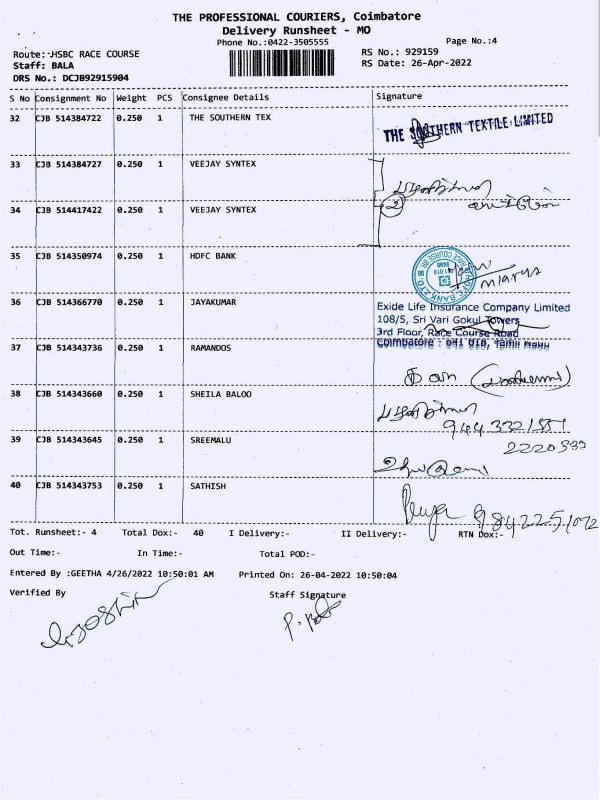 THE PROFESSIONAL COURIERS, Coimbatore
Delivery Runsheet - MO
Phone No.:0422-3505555
Page No.:4
Route: HSBC RACE COURSE
RS No.: 929159
Staff: BALA
RS Date: 26-Apr-2022
DRS No.: DCJB92915904
S No Consignment No Weight PCS Consignee Details Signature
32 CJB 514384722 0.250 1 THE SOUTHERN TEX
THE SOUTHERN TEXTILE LIMITED
33 CJB 514384727 0.250 1 VEEJAY SYNTEX
34 CJB 514417422 0.250 1 VEEJAY SYNTEX
2
35 CJB 514350974 0.250 1 HDFC BANK
36 CJB 514366770 0.250 1 JAYAKUMAR
Exide Life Insurance Company Limited
108/5, Sri Vari Gokul Towers
3rd Floor, Race Course Road
Coimbatore - 641 018, Tamil Nadu
37 CJB 514343736 0.250 1 RAMANDOS
38 CJB 514343660 0.250 1 SHEILA BALOO
39 CJB 514343645 0.250 1 SREEMALU
40 CJB 514343753 0.250 1 SATHISH
Tot. Runsheet:- 4 Total Dox:- 40 I Delivery:- II Delivery:- RTN Dox:-
Out Time:- In Time:- Total POD:-
Entered By :GEETHA 4/26/2022 10:50:01 AM Printed On: 26-04-2022 10:50:04
Verified By Staff Signature